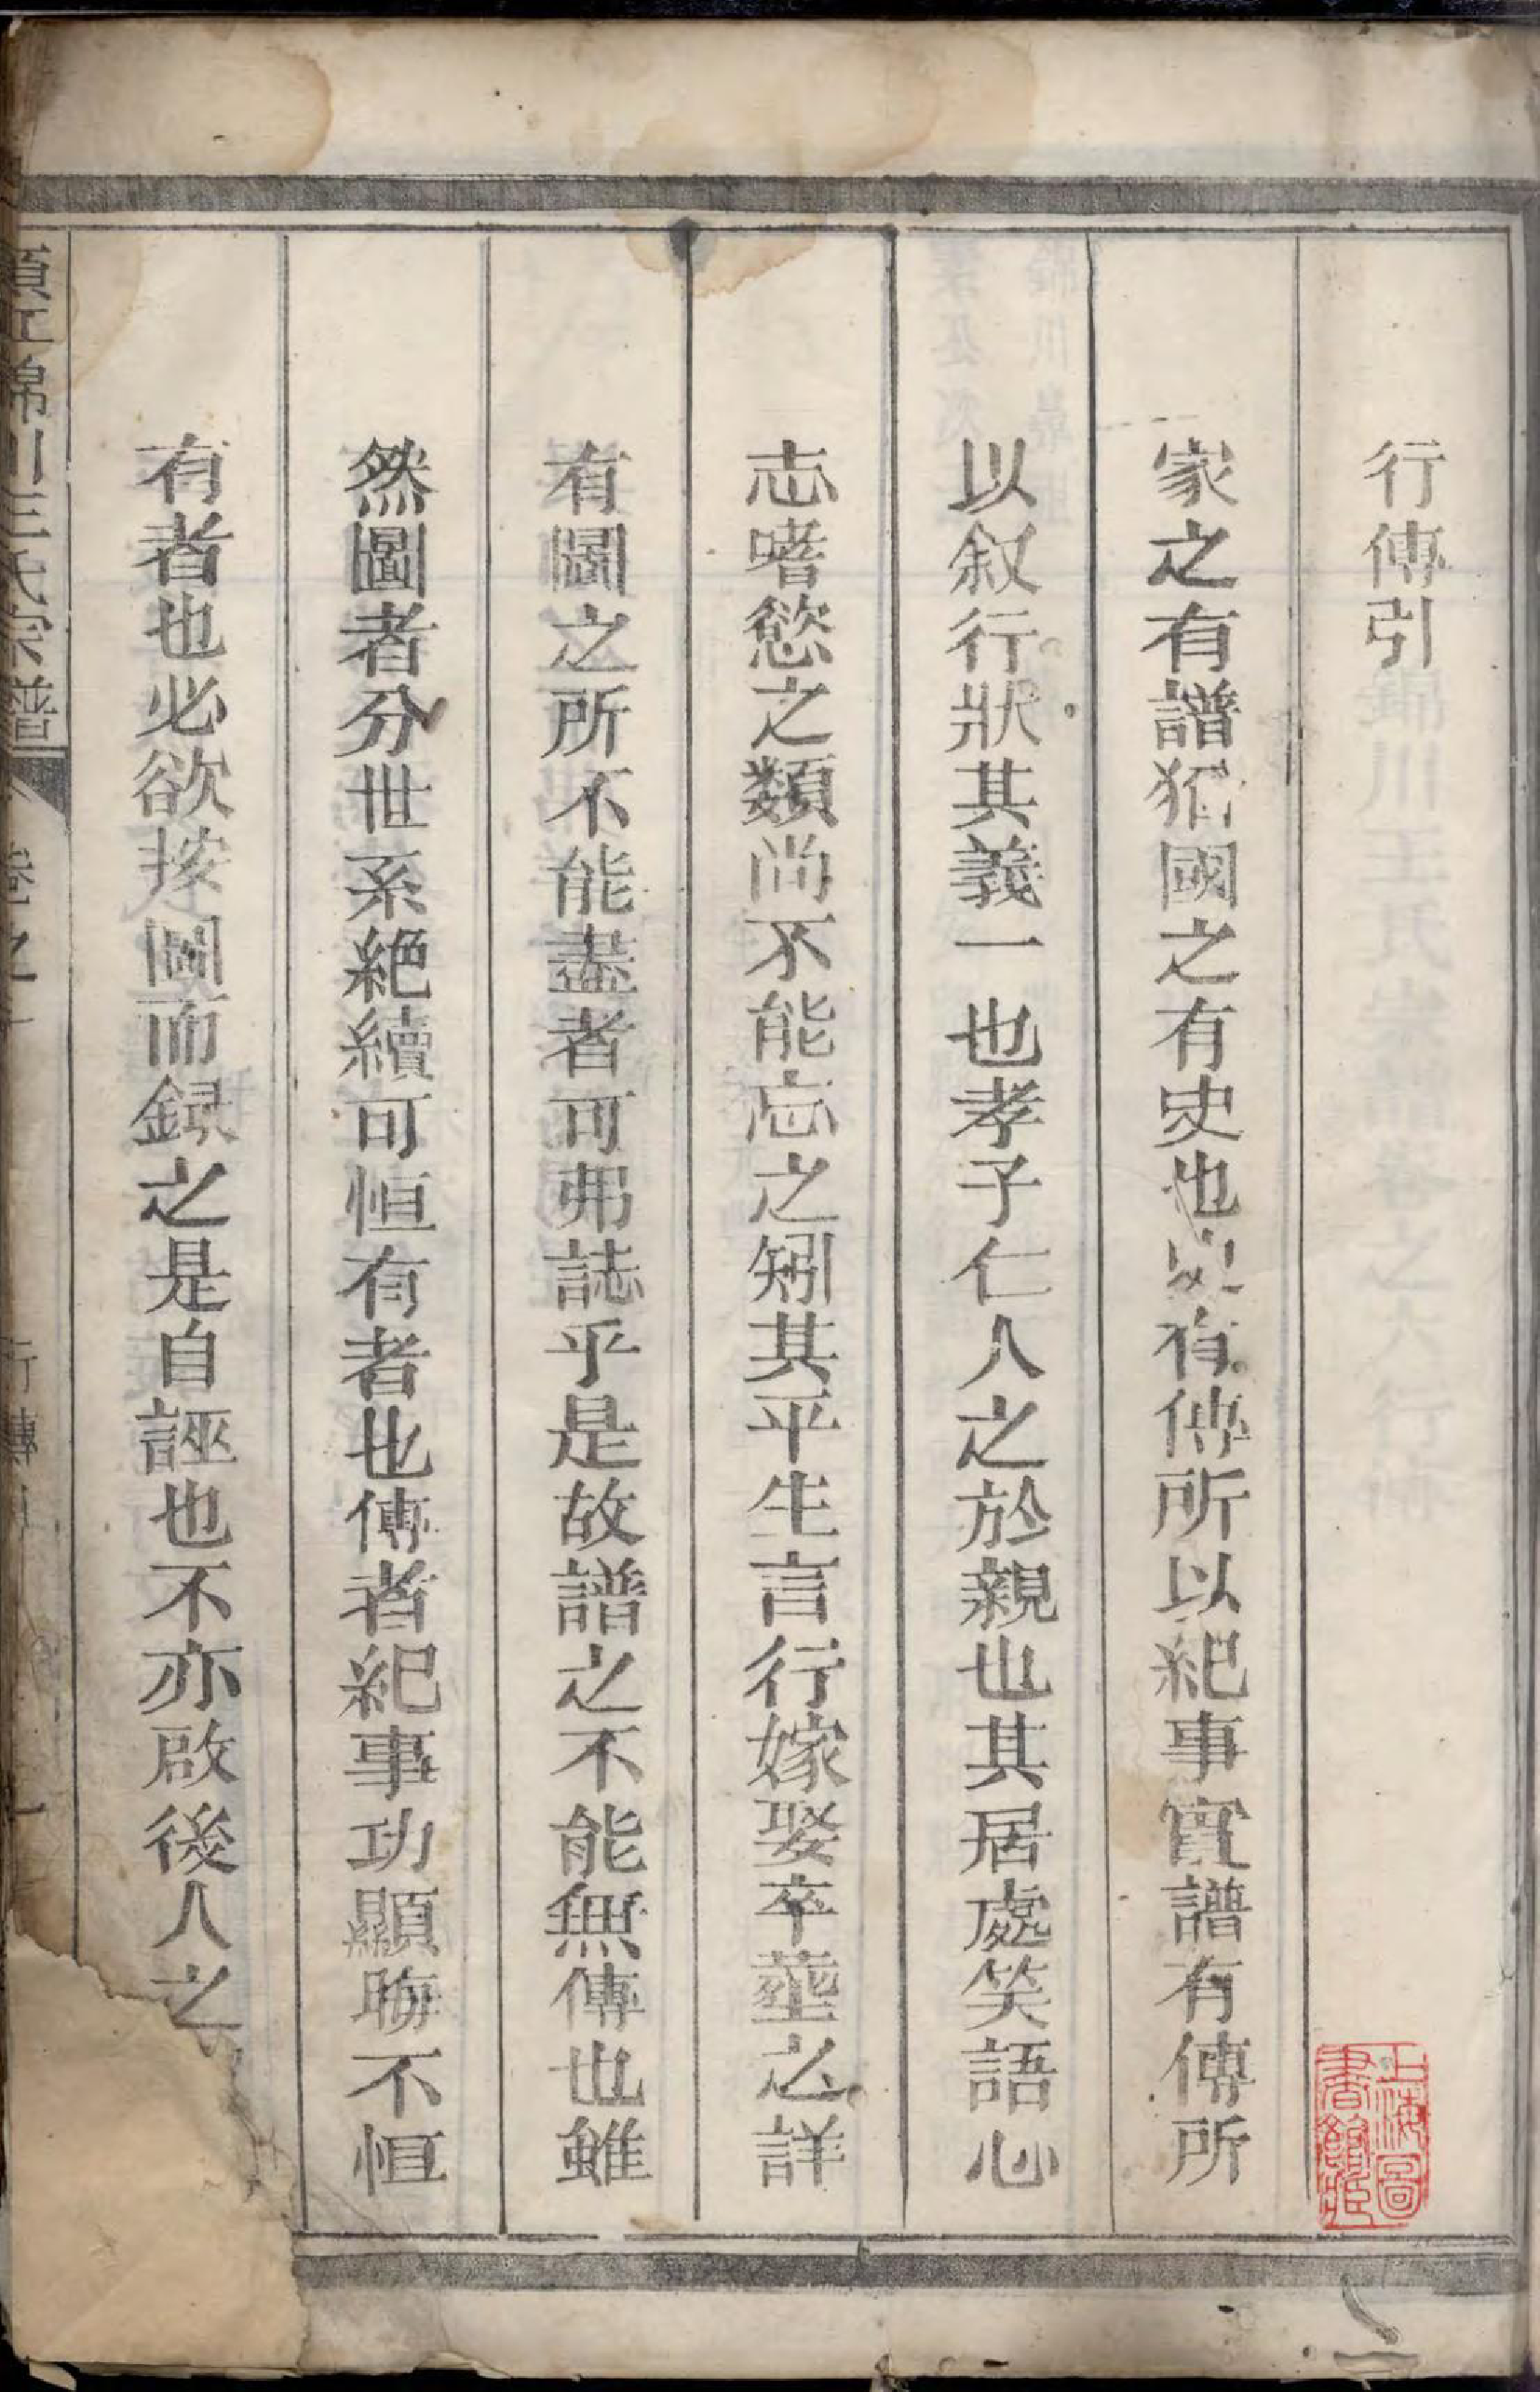 行傳引
家之有譜猶國之有史也史有傳所以紀事實譜有傳所
以叙行狀其義一也孝子仁人之於親也其居處笑語心
志嗜慾之類尚不能忘之矧其平生言行嫁娶卒塟之詳
有圖之所不能盡者可弗誌乎是故譜之不能無傳也雖
然圖者分世系絶續可恒有者也傳者紀事功顯晦不恒
有者也必欲按圖而録之是自誣也不亦啟後人之
錦川王氏宗譜
行傳
上海圖
書館藏